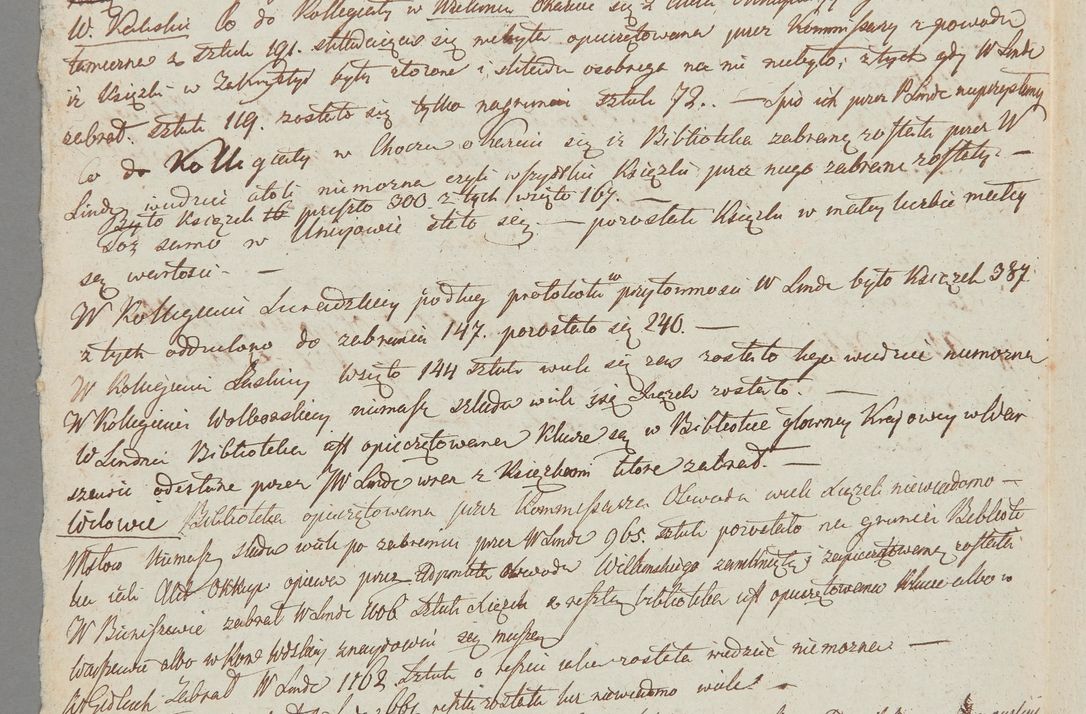 W. Kaliskie Co do Kollegiaty w Wieluniu okazuie się z
tamierna z sztuk 191. składaiąca się niebyła opieczętowana przez Kommissarz z powodu
iż Książki w Zakrystyi były złożone i składu osobnego na nie niebyło; z tych gdy W Linde
zabrał sztuk 119. zostało się tylko nagruncie sztuk 72. — Spis ich przez P Linde
Co do Kollegiaty w Choczu okazuie się iż Biblioteka zabraną została przez W
Linde, wiedzieć atoli niemożna czyli wszystkie Książki przez niego zabrane zostały. —
Było Książek przeszło 300. z tych wzięto 167. —
Toż samo w Uniejowie stało się — pozostałe Książki w małey liczbie małey
są wartości. —
W Kollegiacie Sieradzkiey podług protokołu w przytomności W Linde było Książek 387
z tych oddzielono do zabrania 147. pozostało się 240. —
W Kollegiacie Łaskiey wzięto 144 sztuk wiele się zaś zostało tego wiedzieć niemożna
W Kollegiacie Wolborskiey niemasz sladu wiele się Książek zostało. —
W Lindzie Biblioteka ist opieczętowana Klucze są w Bibliotece głowney Kraiowey w War
szawie odesłane przez JW Linde wraz z Książkami które zabrał. —
Witowie Biblioteka opieczętowana przez Kommissarza Obwodu wiele Książek niewiadomo —
Mstow Niemasz sladu wiele po zabraniu przez W Linde 965. sztuk pozostało na gruncie Bibliote
ka iak Akt opiewa przez Adjunkta Obwodu Wieluńskiego zamknięta i zapieczętowaną została
W zabrał W Linde 1406 sztuk Książek a reszta biblioteka ist opieczętowana Klucze albo w
Warszawie albo w znaydować się muszą
W Gidlach Zabrał W Linde 1162 sztuk o reszcie iaka została wiedzieć niemożna —
reszta została się niewiadomo wiele —